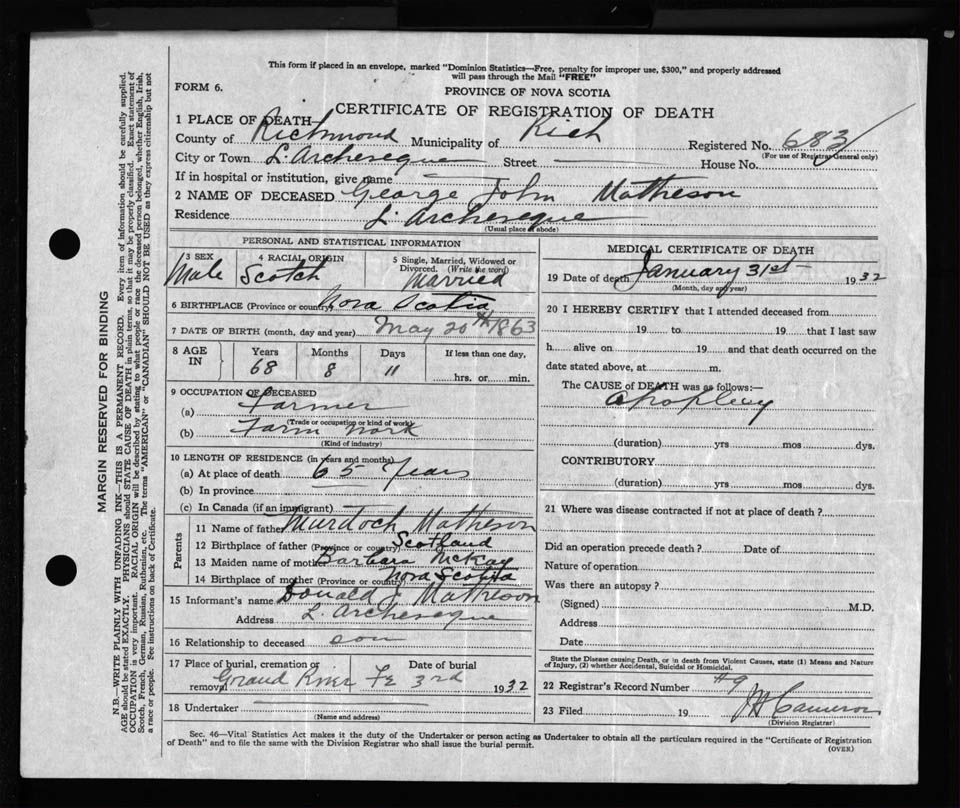 This form if placed in an envelope, marked "Dominion Statistics—Free, penalty for improper use, $300," and properly addressed
will pass through the Mail "FREE"
FORM 6.
PROVINCE OF NOVA SCOTIA
CERTIFICATE OF REGISTRATION OF DEATH
1 PLACE OF DEATH
County of Richmond Municipality of Rich Registered No. 683
(For use of Registrar General only)
City or Town L. Archeveque Street — House No.
If in hospital or institution, give name —
2 NAME OF DECEASED George John Matheson
Residence L. Archeveque
(Usual place of abode)
PERSONAL AND STATISTICAL INFORMATION
3 SEX Male
4 RACIAL ORIGIN Scotch
5 Single, Married, Widowed or Divorced. (Write the word) Married
6 BIRTHPLACE (Province or country) Nova Scotia
7 DATE OF BIRTH (month, day and year) May 20th 1863
8 AGE IN Years 68 Months 8 Days 11 If less than one day, hrs. or min.
9 OCCUPATION OF DECEASED
(a) Farmer
(Trade or occupation or kind of work)
(b) Farm work
(Kind of industry)
10 LENGTH OF RESIDENCE (in years and months)
(a) At place of death 65 Years
(b) In province
(c) In Canada (if an immigrant)
Parents
11 Name of father Murdoch Matheson
12 Birthplace of father (Province or country) Scotland
13 Maiden name of mother Barbara McKay
14 Birthplace of mother (Province or country) Nova Scotia
15 Informant's name Donald J Matheson
Address L. Archeveque
16 Relationship to deceased son
17 Place of burial, cremation or removal Grand River Date of burial Fe 3rd 1932
18 Undertaker
(Name and address)
MEDICAL CERTIFICATE OF DEATH
19 Date of death January 31st 1932
(Month, day and year)
20 I HEREBY CERTIFY that I attended deceased from
19 to 19 that I last saw
h alive on 19 and that death occurred on the
date stated above, at m.
The CAUSE of DEATH was as follows:—
Apoplexy
(duration) yrs mos dys.
CONTRIBUTORY
(duration) yrs mos dys.
21 Where was disease contracted if not at place of death?
Did an operation precede death? Date of
Nature of operation
Was there an autopsy?
(Signed) M.D.
Address
Date
State the Disease causing Death, or in death from Violent Causes, state (1) Means and Nature
of Injury, (2) whether Accidental, Suicidal or Homicidal.
22 Registrar's Record Number #9
23 Filed 19 Cameron
(Division Registrar)
Sec. 46—Vital Statistics Act makes it the duty of the Undertaker or person acting as Undertaker to obtain all the particulars required in the "Certificate of Registration
of Death" and to file the same with the Division Registrar who shall issue the burial permit.
(OVER)
MARGIN RESERVED FOR BINDING
N.B.—WRITE PLAINLY WITH UNFADING INK—THIS IS A PERMANENT RECORD. Every item of information should be carefully supplied.
AGE should be stated EXACTLY. PHYSICIANS should STATE CAUSE OF DEATH in plain terms, so that it may be properly classified. Exact statement of
OCCUPATION is very important. RACIAL ORIGIN will be described by stating to what people or race the deceased person belonged, whether English, Irish,
Scotch, French, German, Russian, Ruthenian, etc. The terms "AMERICAN" or "CANADIAN" SHOULD NOT BE USED as they express citizenship but not
a race or people. See instructions on back of Certificate.